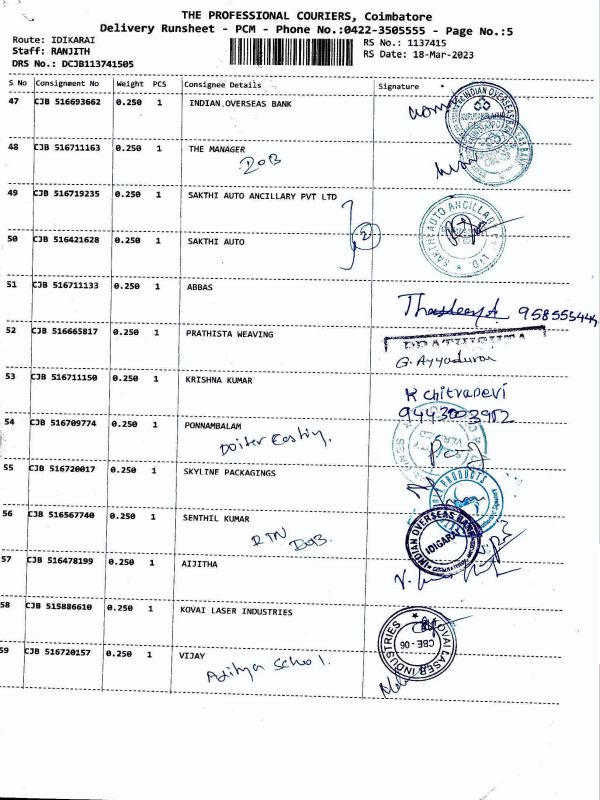 THE PROFESSIONAL COURIERS, Coimbatore
Delivery Runsheet - PCM - Phone No.:0422-3505555 - Page No.:5
Route: IDIKARAI
RS No.: 1137415
Staff: RANJITH
RS Date: 18-Mar-2023
DRS No.: DCJB113741505
S No Consignment No Weight PCS Consignee Details Signature
47 CJB 516693662 0.250 1 INDIAN OVERSEAS BANK
48 CJB 516711163 0.250 1 THE MANAGER
49 CJB 516719235 0.250 1 SAKTHI AUTO ANCILLARY PVT LTD
2
50 CJB 516421628 0.250 1 SAKTHI AUTO
SAKTHI AUTO ANCILLARY PVT. LTD.
51 CJB 516711133 0.250 1 ABBAS
52 CJB 516665817 0.250 1 PRATHISTA WEAVING
G. Ayyadurai
53 CJB 516711150 0.250 1 KRISHNA KUMAR
K Chitradevi
9443003902
54 CJB 516709774 0.250 1 PONNAMBALAM
55 CJB 516720017 0.250 1 SKYLINE PACKAGINGS
56 CJB 516567740 0.250 1 SENTHIL KUMAR
RTN
INDIAN OVERSEAS BANK
IDIGARAI
57 CJB 516478199 0.250 1 AIJITHA
58 CJB 515886610 0.250 1 KOVAI LASER INDUSTRIES
KOVAI LASER INDUSTRIES
CBE - 06
59 CJB 516720157 0.250 1 VIJAY
Aditya School.